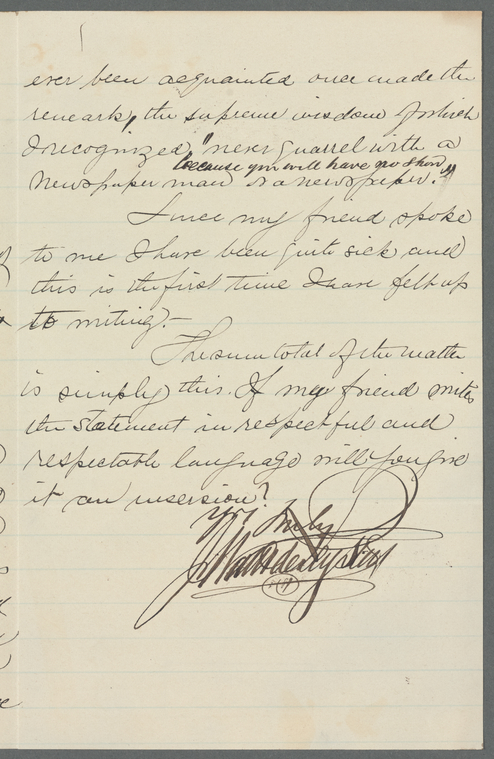 ever been acquainted once made the
remark, the supreme wisdom of which
I recognized, "never quarrel with a
because you will have no show
newspaper man or a newspaper."
Since my friend spoke
to me I have been quite sick and
this is the first time I have felt up
to writing.—
The sum total of the matter
is simply this. If my friend writes
the statement in respectful and
respectable language will you give
it an insersion?
Yrs. Truly